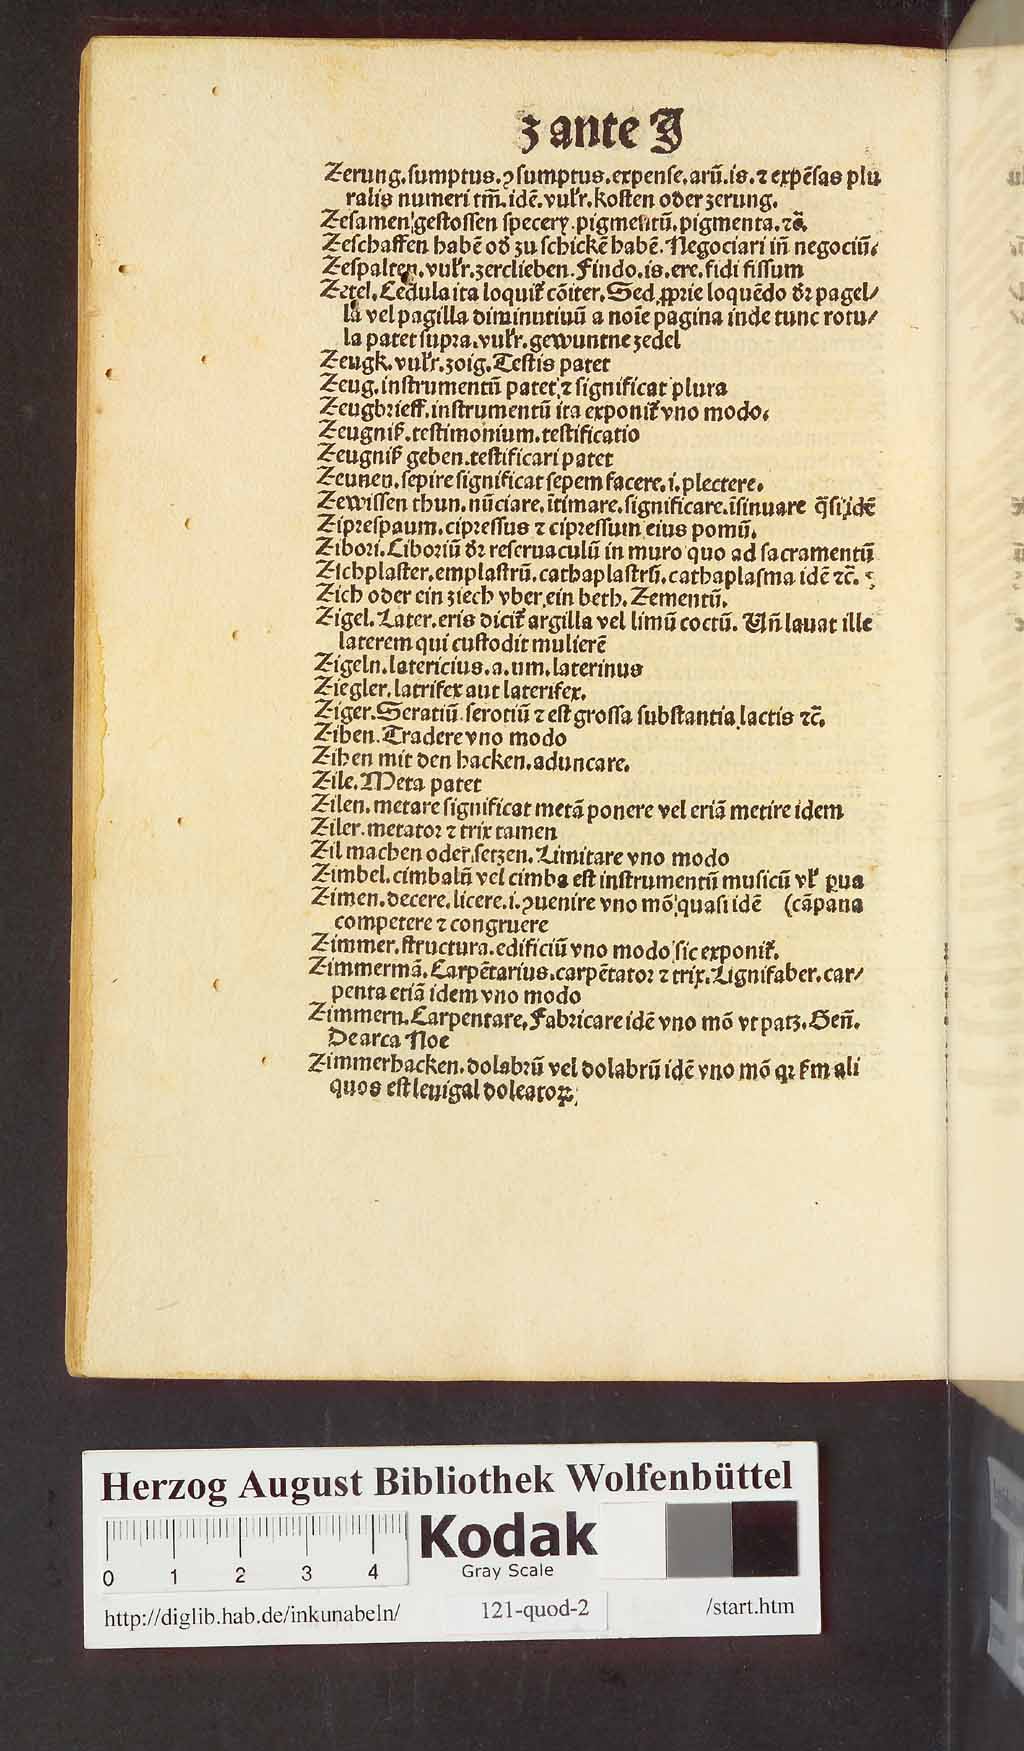 Z ante I
Zerung. sumptus. ꝯsumptus. expense. arũ. is. ⁊ expẽsas plu
ralis numeri tm̃. idẽ. vulr̃. kosten oder zerung.
Zesamen gestossen specery. pigmentũ. pigmenta. ⁊c̃.
Zeschaffen habẽ od̃ zu schickẽ habẽ. Negociari in̄ negociũ.
Zespalten. vulr̃. zerclieben. Findo. is. ere. fidi fissum
Zetel. Cedula ita loquit̃ cõiter. Sed ꝓprie loquẽdo dr̃ pagel/
la vel pagilla diminutiuũ a noĩe pagina inde tunc rotu/
la patet supra. vulr̃. gewuntne zedel
Zeugk. vulr̃. zoig. Testis patet
Zeug. instrumentũ patet ⁊ significat plura
Zeugbrieff. instrumentũ ita exponit̃ vno modo.
Zeugniß. testimonium. testificatio
Zeugniß geben. testificari patet
Zeunen. sepire significat sepem facere. i. plectere.
Zewissen thun. nũciare. ĩtimare. significare. ĩsinuare q̃si idẽ
Ziprespaum. cipressus ⁊ cipressum eius pomũ.
Zibori. Ciboriũ dr̃ reseruaculũ in muro quo ad sacramentũ
Zichplaster. emplastrũ. cathaplastrũ. cathaplasma idẽ ⁊c̃.
Zich oder ein ziech vber ein beth. Zementũ.
Zigel. Later. eris dicit̃ argilla vel limũ coctũ. Vñ lauat ille
laterem qui custodit mulierẽ
Zigeln. latericius. a. um. laterinus
Ziegler. latrifex aut laterifex.
Ziger. Seratiũ serotiũ ⁊ est grossa substantia lactis ⁊c̃.
Ziben. Tradere vno modo
Zihen mit den hacken. aduncare.
Zile. Meta patet
Zilen. metare significat metã ponere vel etiã metire idem
Ziler. metator ⁊ trix tamen
Zil machen oder setzen. Limitare vno modo
Zimbel. cimbalũ vel cimba est instrumentũ musicũ vl̃ ꝑua
Zimen. decere. licere. i. ꝯuenire vno mõ quasi idẽ (cãpana
competere ⁊ congruere
Zimmer. structura. edificiũ vno modo sic exponit̃.
Zimmermã. Carpẽtarius. carpẽtator ⁊ trix. Lignifaber. car/
penta etiã idem vno modo
Zimmern. Carpentare. Fabricare idẽ vno mõ vt patz. Geñ.
De arca Noe
Zimmerhacken. dolabrũ vel dolabrũ idẽ vno mõ qꝛ ẜm ali
quos est leuigal doleatoꝝ
Herzog August Bibliothek Wolfenbüttel
0 1 2 3 4
Kodak
Gray Scale
http://diglib.hab.de/inkunabeln/ 121-quod-2 /start.htm